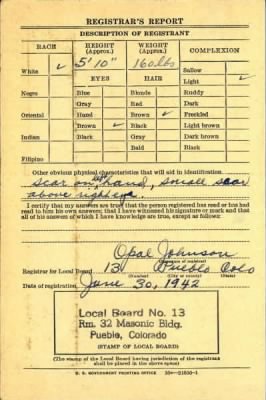 REGISTRAR'S REPORT
DESCRIPTION OF REGISTRANT
RACE HEIGHT (Approx.) WEIGHT (Approx.) COMPLEXION
5' 10" 160 lbs
White ✓ Sallow
EYES HAIR Light ✓
Negro Blue Blonde Ruddy
Gray Red Dark
Oriental Hazel Brown ✓ Freckled
Brown ✓ Black Light brown
Indian Black Gray Dark brown
Bald Black
Filipino
Other obvious physical characteristics that will aid in identification
scar on left hand, small scar
above right eye.
I certify that my answers are true; that the person registered has read or has had
read to him his own answers; that I have witnessed his signature or mark and that
all of his answers of which I have knowledge are true, except as follows:
Opal Johnson
(Signature of registrar)
Registrar for Local Board 13 Pueblo Colo
(Number) (City or county) (State)
Date of registration June 30, 1942
Local Board No. 13
Rm. 32 Masonic Bldg.
Pueblo, Colorado
(STAMP OF LOCAL BOARD)
(The stamp of the Local Board having jurisdiction of the registrant
shall be placed in the above space)
U. S. GOVERNMENT PRINTING OFFICE 16—21630-1